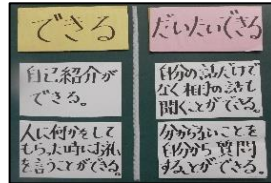 できる
自己紹介が
できる。
人に何かをして
もらった時にお礼
を言うことができる。
だいたいできる
自分の話だけで
なく相手の話も
聞くことができる。
分からないことを
自分から質問
することができる。